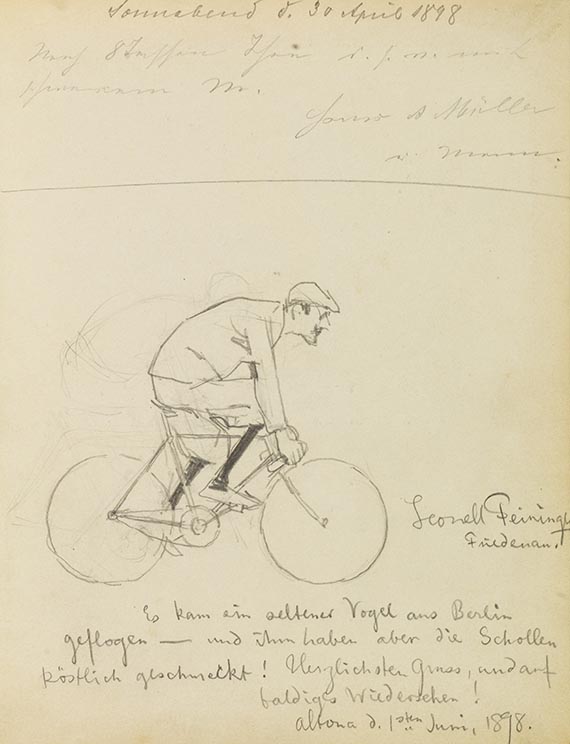 Sonnabend d. 30 April 1898
Nach 8 Tassen Thee u. s. w. mit
M.
Hans A Müller
u.
Leonell Feininger
Friedenau.
Es kam ein seltener Vogel aus Berlin
geflogen — und ihm haben aber die Schollen
köstlich geschmeckt! Herzlichsten Gruss, und auf
baldiges Wiedersehen!
Altona d. 1sten Juni, 1898.